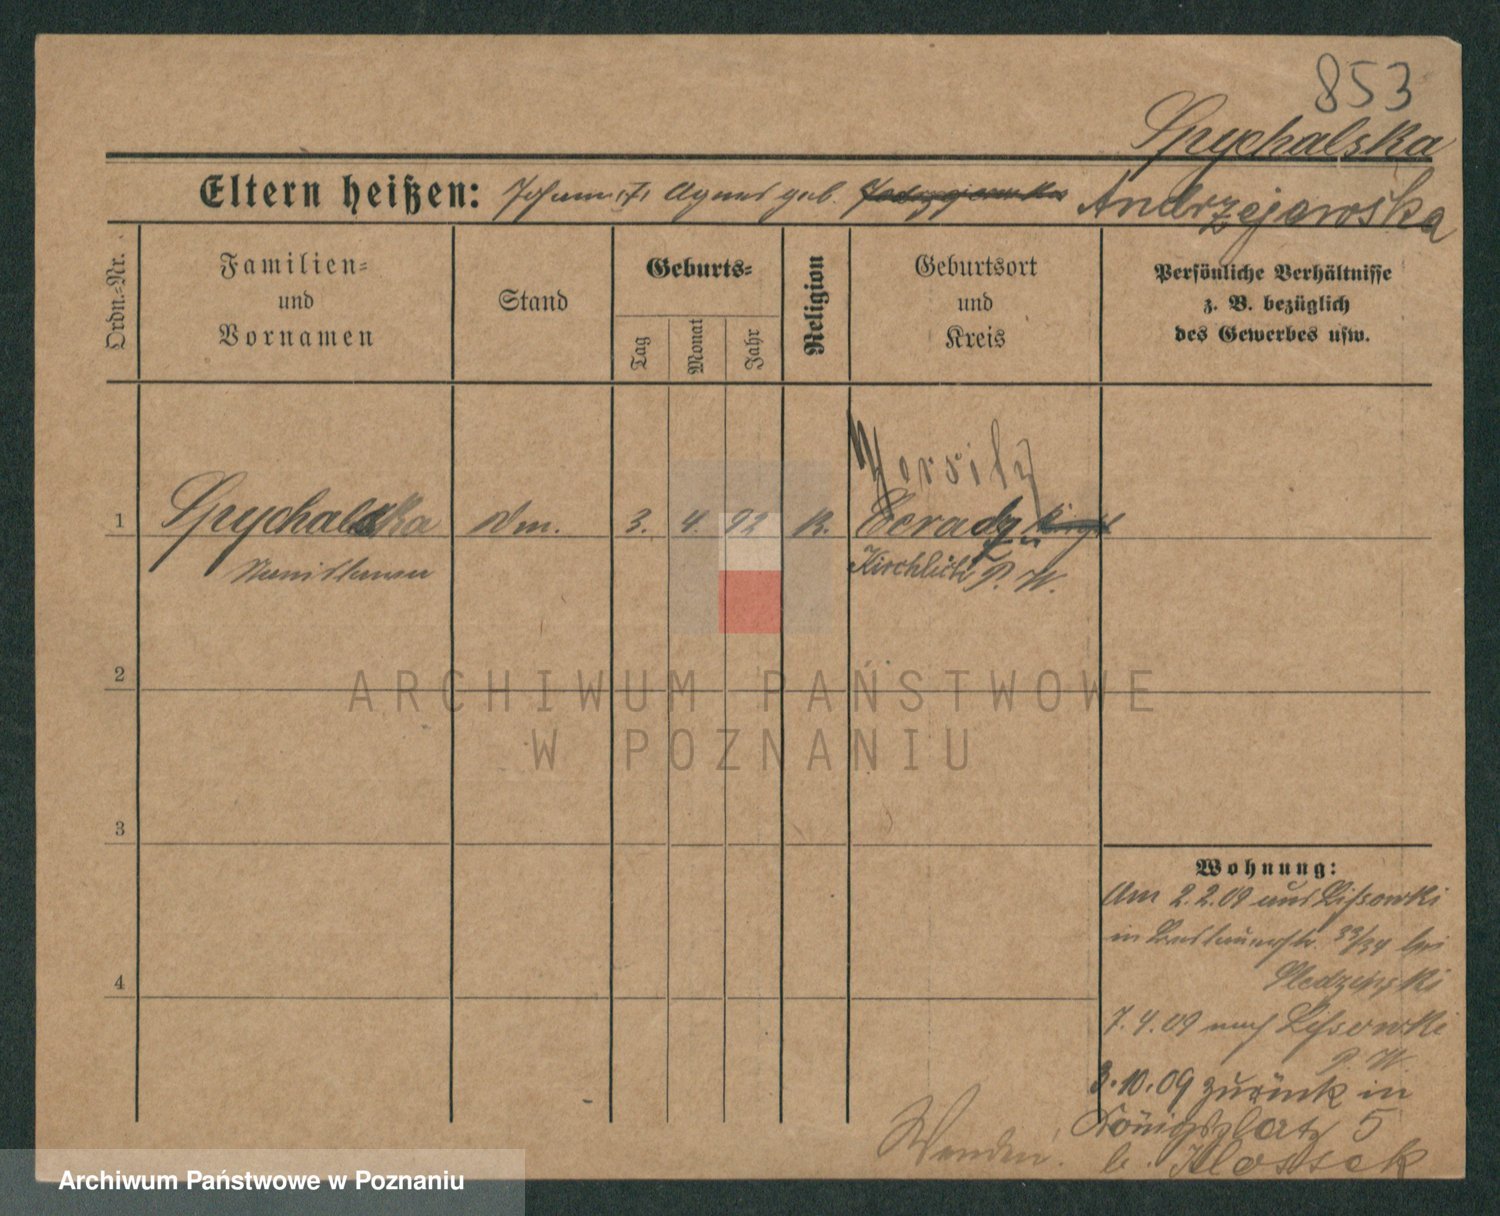 853
Spychalska
Eltern heißen: Johann u. Agnes geb. Andrzejewska
Ordn.-Nr.
Familien-
und
Vornamen
Stand
Geburts-
Tag
Monat
Jahr
Religion
Geburtsort
und
Kreis
Persönliche Verhältnisse
z. B. bezüglich
des Gewerbes usw.
1
Spychalska
Stanislawa
3. 4. 92
K.
Kirchlich P. W.
2
ARCHIWUM PAŃSTWOWE
W POZNANIU
3
4
Wohnung:
Am 2.2.09 aus Lissowki
in 33/34 bei
7.4.09 nach Lissowki
P. W.
3.10.09 zurück in
Königsplatz 5
b. Klossek
Wenden!
Archiwum Państwowe w Poznaniu